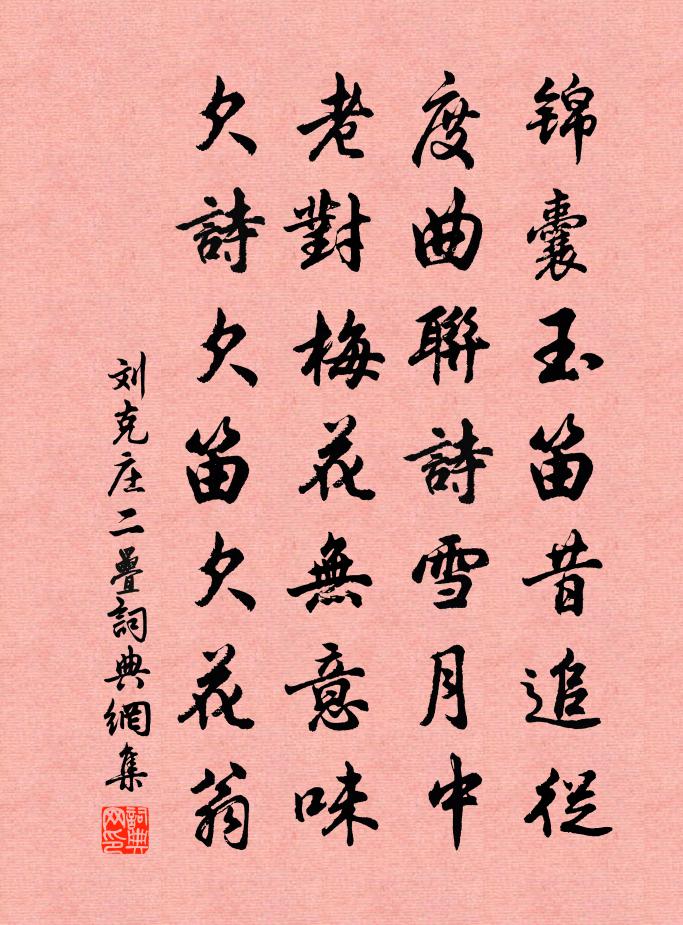 锦囊玉笛昔追従
度曲聨詩雪月中
老對梅花無意味
欠詩欠笛欠花翁
刘克庄二疊詞典網集
詞典网印